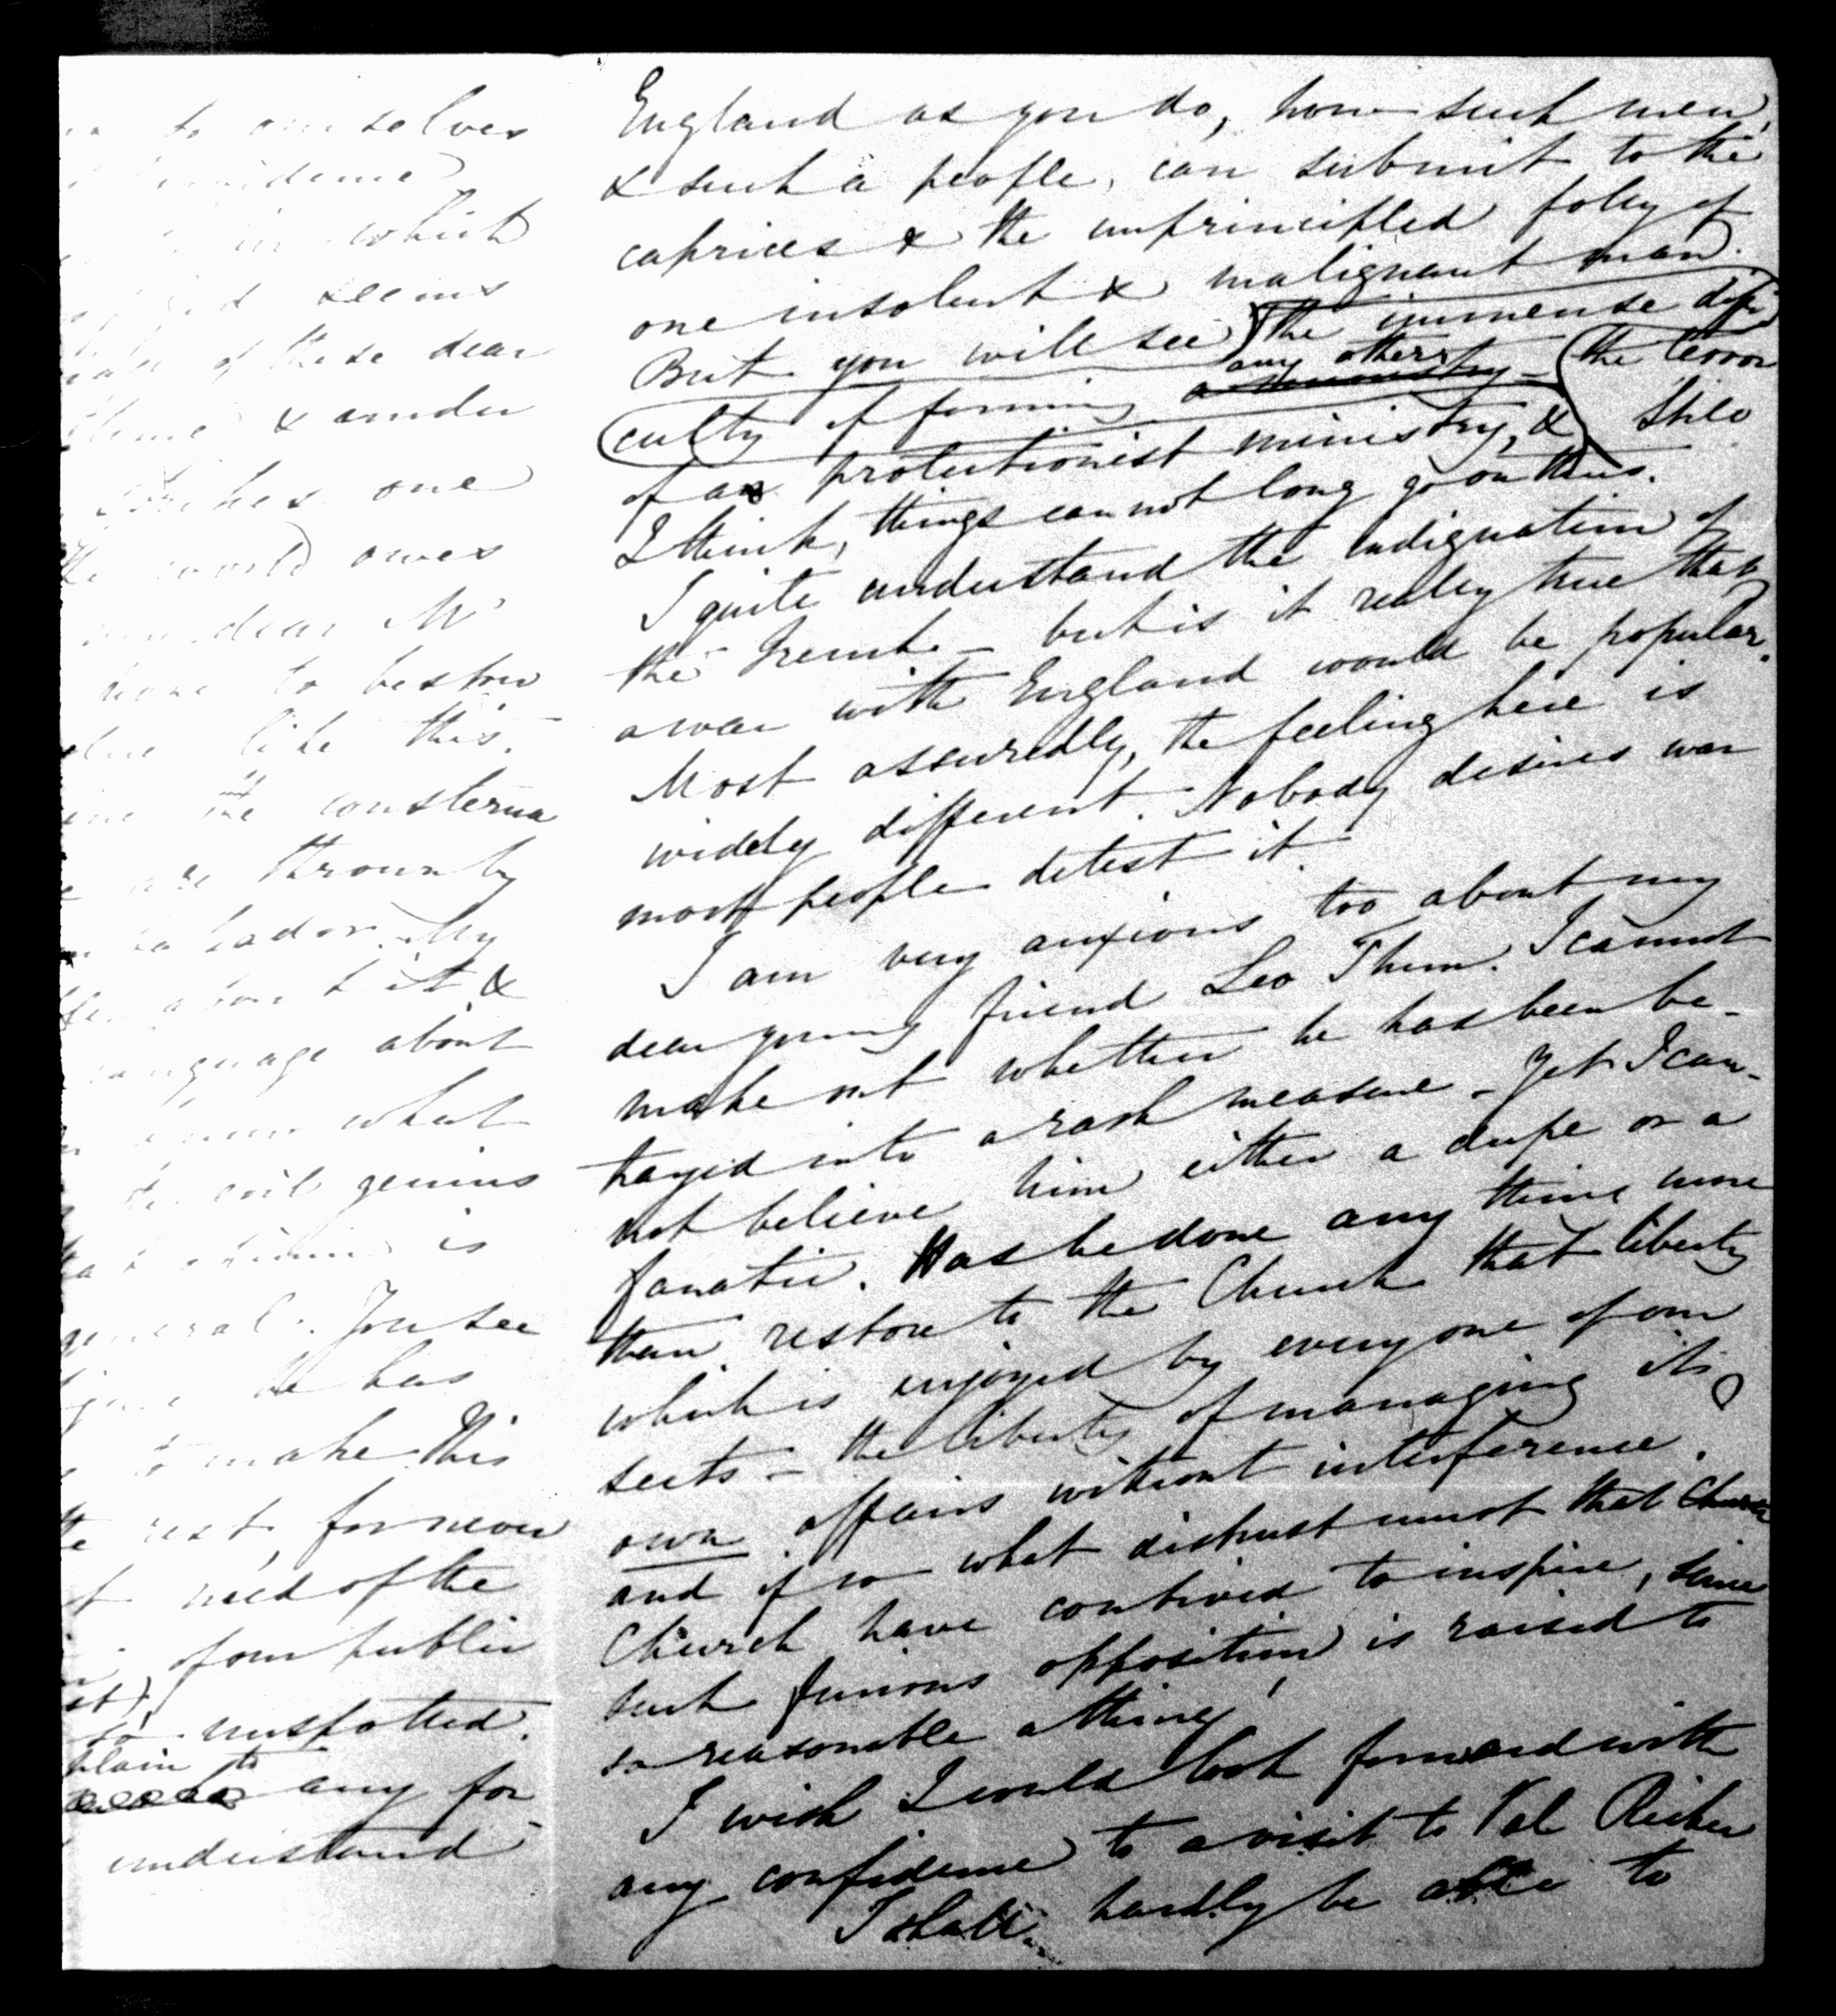 to ourselves
in which
seems
of these dear
& under
one
the world owes
dear Mr
to bestow
like this.
the consterna
are thrown by
My
about it &
language about
what
evil genius
is
general. You see
he has
to make this
rest, for never
need of the
of our public
unspotted.
plain to
any for
understand
England as you do, how such men,
& such a people, can submit to the
caprices & the unprincipled policy of
one insolent & malignant man.
But you will see the immense diffi
culty of forming any other, – the terror
of a protectionist ministry, & Still
I think, things cannot long go on thus.
I quite understand the indignation of
the French – but is it really true that
a war with England would be popular.
Most assuredly, the feeling here is
widely different. Nobody desires war
most people detest it.
I am very anxious too about my
dear young friend Leo Thun. I cannot
make out whether he has been be-
trayed into a rash measure – yet I can-
not believe him either a dupe or a
fanatic. Has he done any thing more
than restore to the Church that liberty
which is enjoyed by every one of our
sects – the liberty of managing its
own affairs without interference.
and if so what distrust must that Church
Church have contrived to inspire, since
such furious opposition is raised to
so reasonable a thing!
I wish I could look forward with
any confidence to a visit to Val Richer
I shall hardly be able to